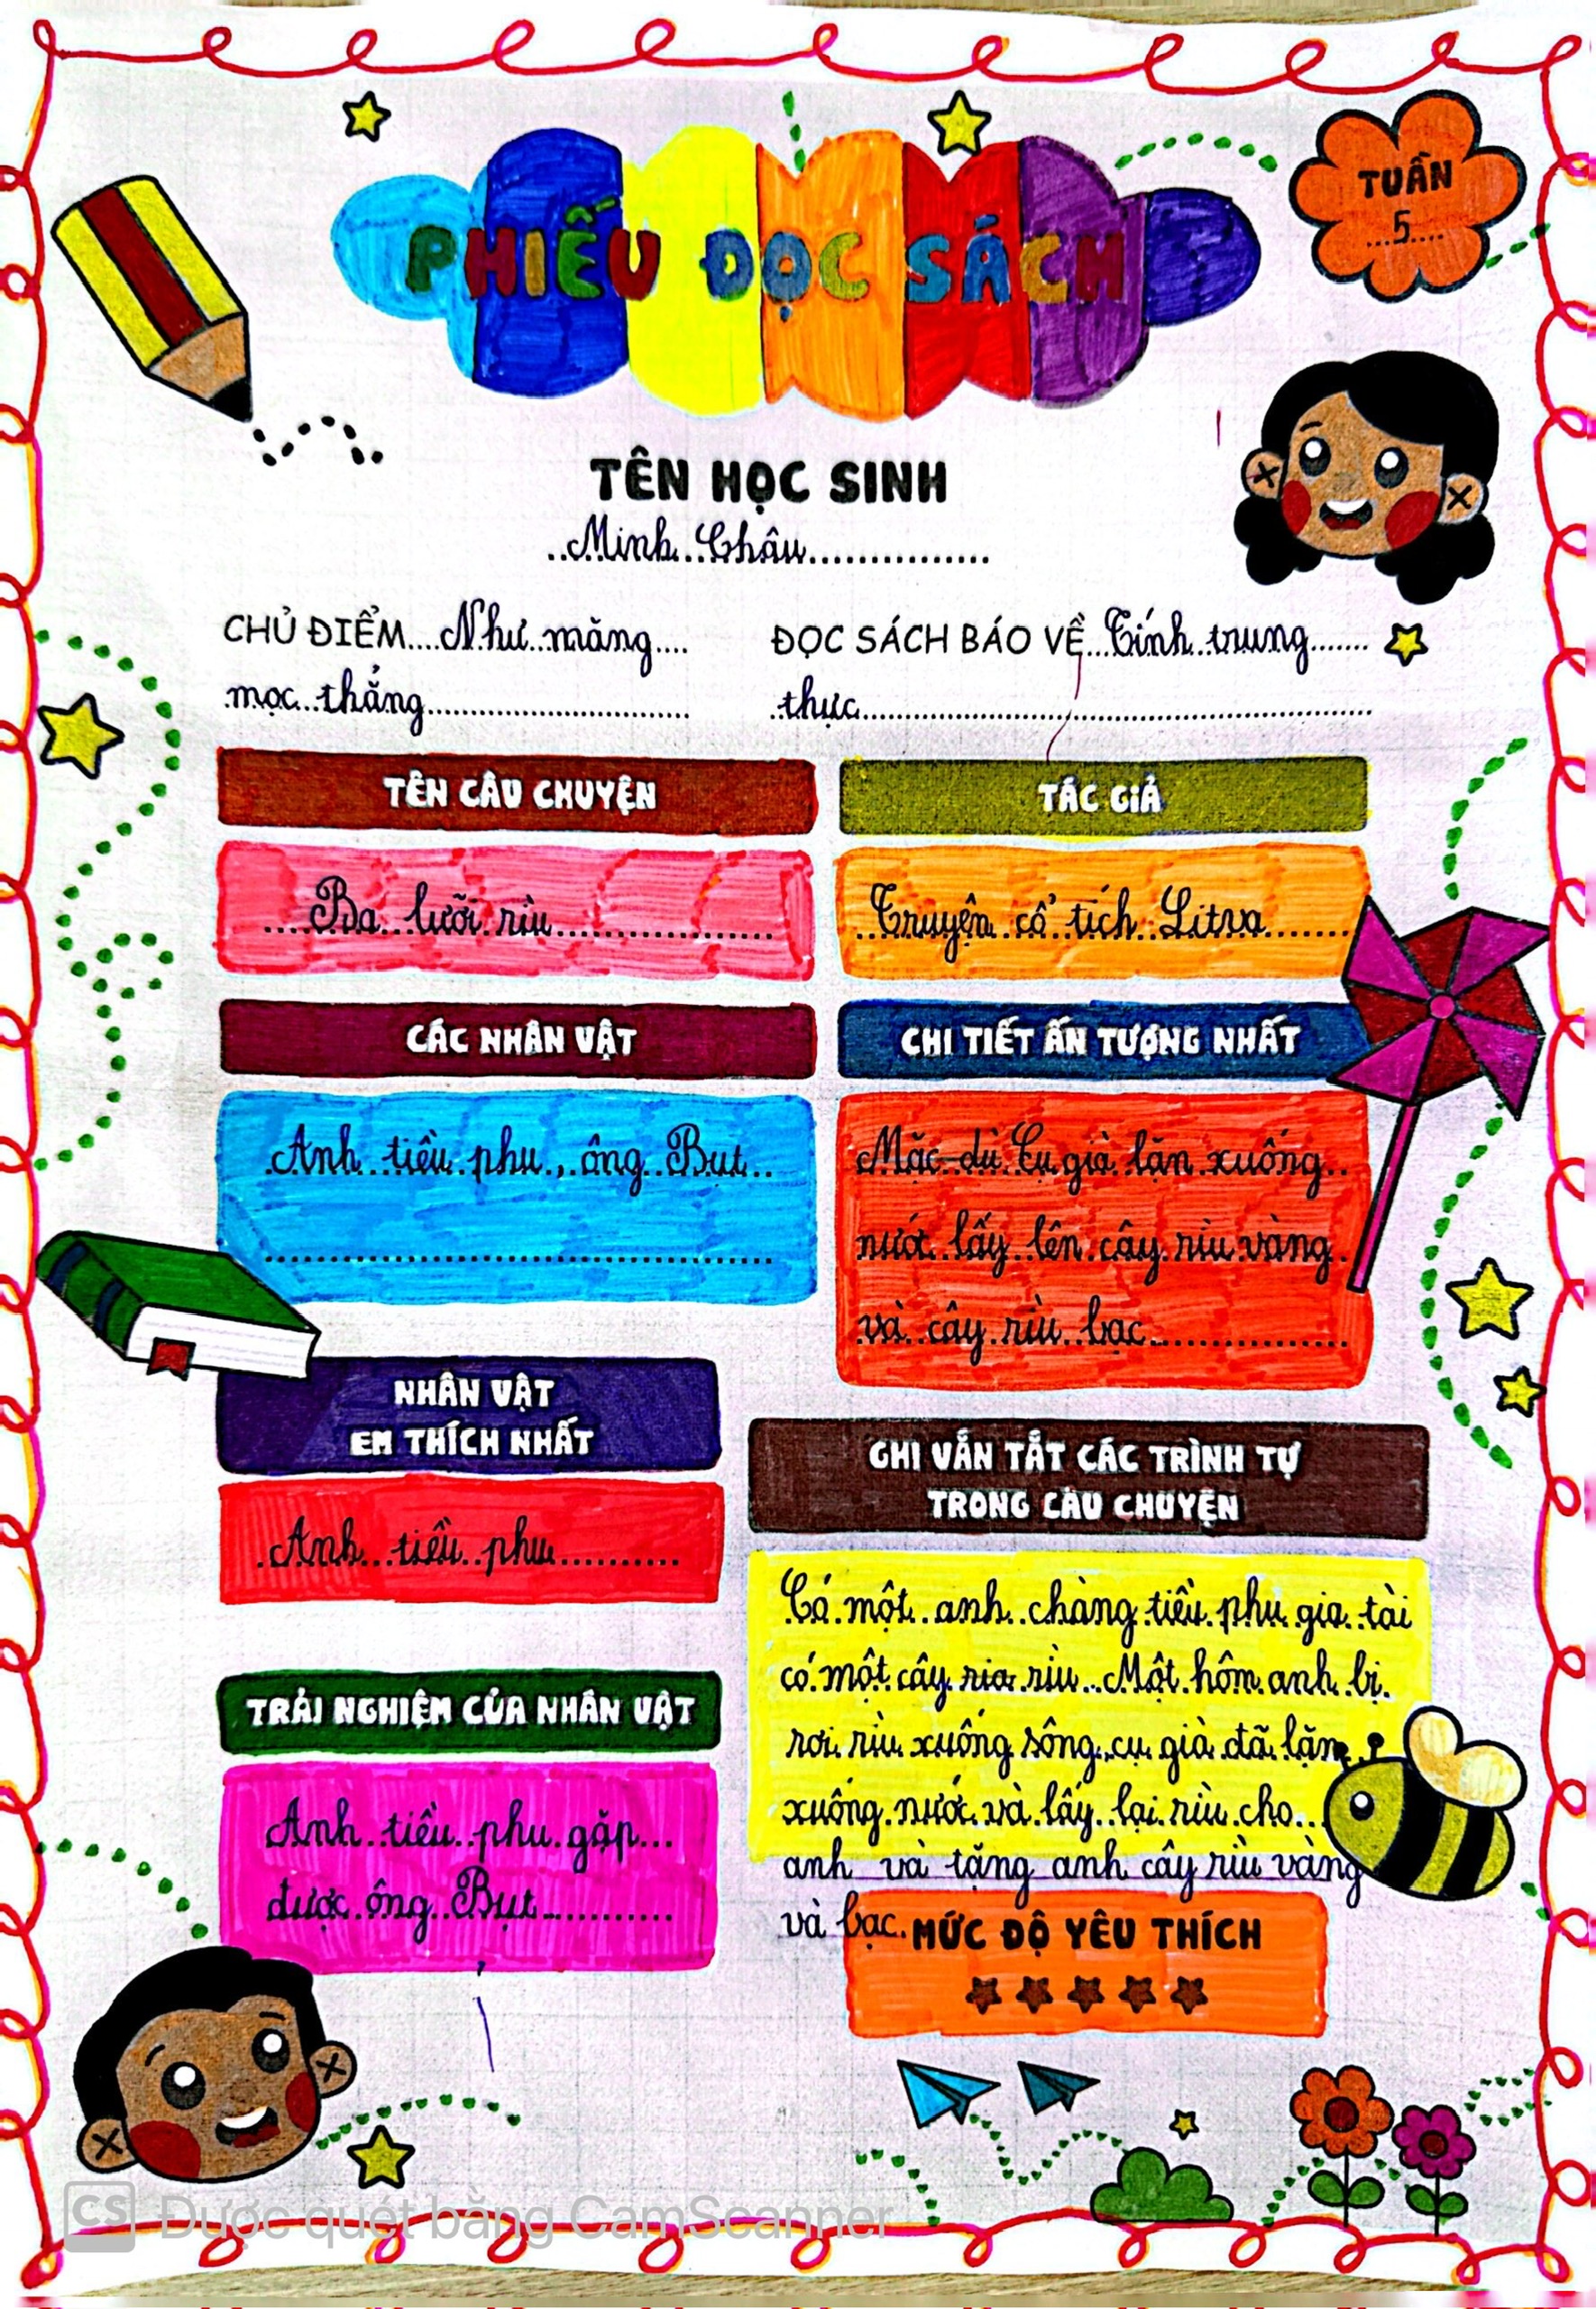 PHIẾU ĐỌC SÁCH
TUẦN
5
TÊN HỌC SINH
Minh Châu
CHỦ ĐIỂM Như măng
mọc thẳng
ĐỌC SÁCH BÁO VỀ Tính trung
thực
TÊN CÂU CHUYỆN
Ba lưỡi rìu
TÁC GIẢ
Truyện cổ tích Litva
CÁC NHÂN VẬT
Anh tiều phu, ông Bụt
CHI TIẾT ẤN TƯỢNG NHẤT
Mặc dù Cụ già lặn xuống
nước lấy lên cây rìu vàng
và cây rìu bạc
NHÂN VẬT
EM THÍCH NHẤT
Anh tiều phu
GHI VẮN TẮT CÁC TRÌNH TỰ
TRONG CÂU CHUYỆN
Có một anh chàng tiều phu gia tài
có một cây ria rìu. Một hôm anh bị
rơi rìu xuống sông, cụ già đã lặn
xuống nước và lấy lại rìu cho
anh và tặng anh cây rìu vàng
và bạc.
TRẢI NGHIỆM CỦA NHÂN VẬT
Anh tiều phu gặp
được ông Bụt
MỨC ĐỘ YÊU THÍCH
CS Được quét bằng CamScanner